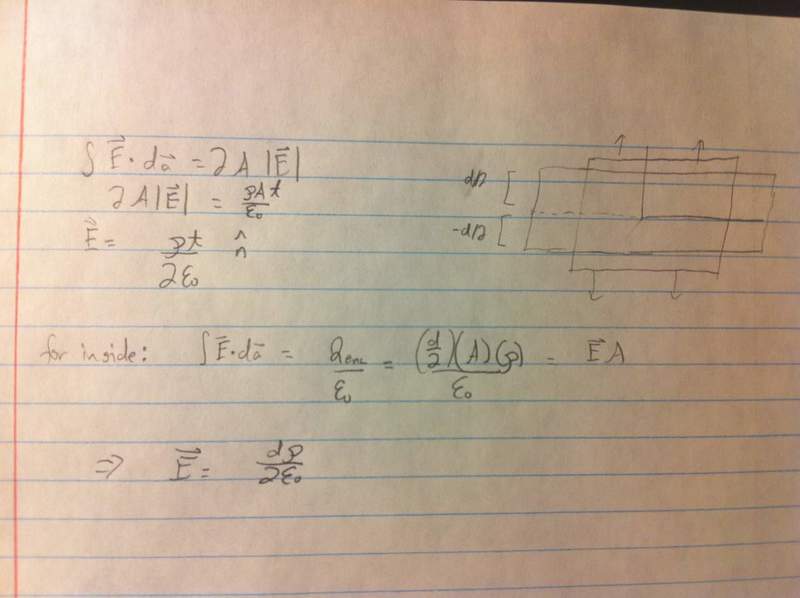 ∫ E⃗ · da⃗ = 2A |E⃗|
2A|E⃗| = ρAt/ε₀
E⃗ = ρt/2ε₀ n̂
d/2
-d/2
for inside: ∫ E⃗ · da⃗ = Qenc/ε₀ = (d/2)(A)(ρ)/ε₀ = E⃗ A
⇒ E⃗ = dρ/2ε₀